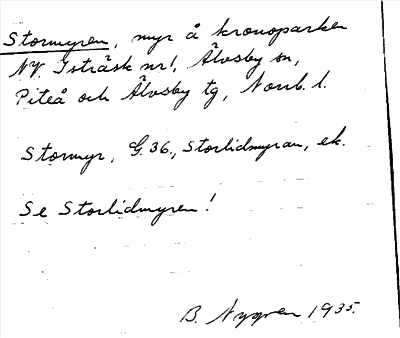 Stormyren, myr å kronoparken
NV. Isträsk nr1, Älvsby sn,
Piteå och Älvsby tg, Norrb. l.
Stormyr, G. 36., Storlidmyran, ek.
Se Storlidmyren!
B. Nygren 1935.